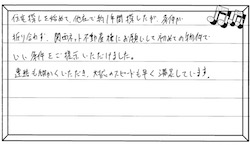 住宅探しを始めて、他社で約1年間探したが、条件が
折り合わず、関西ネット不動産様にお願いして初めての物件で
いい条件をご提示いただけました。
連絡も細かくいただき、対応のスピードも早く満足しています。